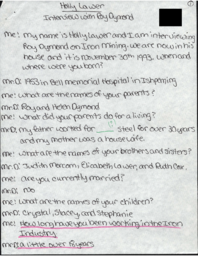 Holly Lawer
Interview with Ray Oymond
me: my name is Holly Lawer and I am interviewing
Ray Oymond on Iron Mining. we are now in his
house and it is november 30th 1993. when and
where were you born?
1953 in Bell memorial Hospital in Ishpeming
me: what are the names of your parents?
Ray and Helen Oymond
me: what did your parents do for a living?
my father worked for steel for over 30 years
and my mother was a housewife.
me: what are the names of your brothers and sisters?
Judith Marcom, Elizabeth Lawer, and Ruth
me: are you currently married?
no
me: what are the names of your children?
Crystal, Stacey, and Stephanie
me: How long have you been working in the Iron
Industry
a little over 5 years